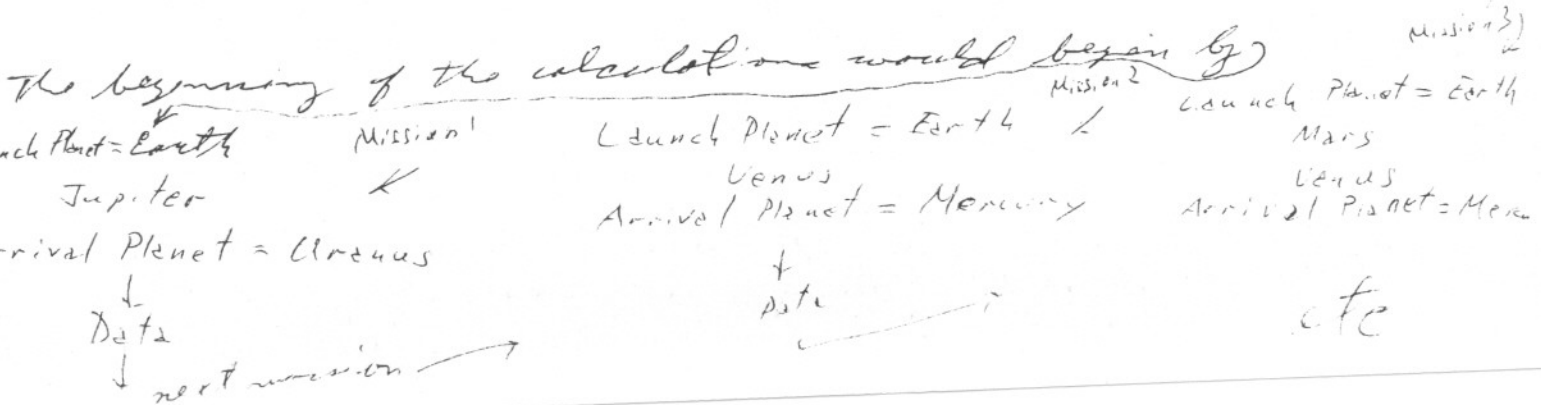 The beginning of the calculations would begin by
Mission 1
Launch Planet = Earth
Jupiter
Arrival Planet = Uranus
Data
next mission
Mission 2
Launch Planet = Earth
Venus
Arrival Planet = Mercury
Data
Mission 3
Launch Planet = Earth
Mars
Venus
Arrival Planet = Merc
etc